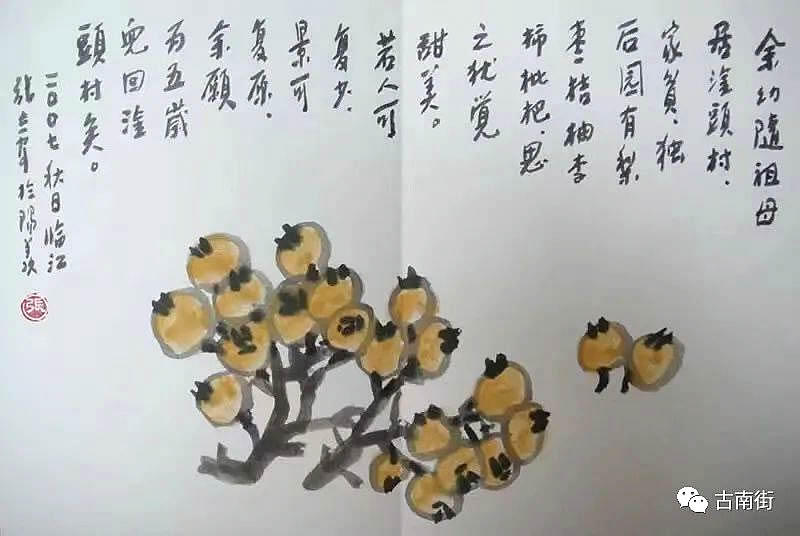 余幼隨祖母
居塗頭村、
家貧、独
后园有梨
枣、桔柚李
柿枇杷、思
之犹覺
甜美。
若人可
复少、
景可
复原、
余願
为五歲
兒回塗
頭村矣。
二〇〇七秋日临江
张 於陽羡
張
古南街